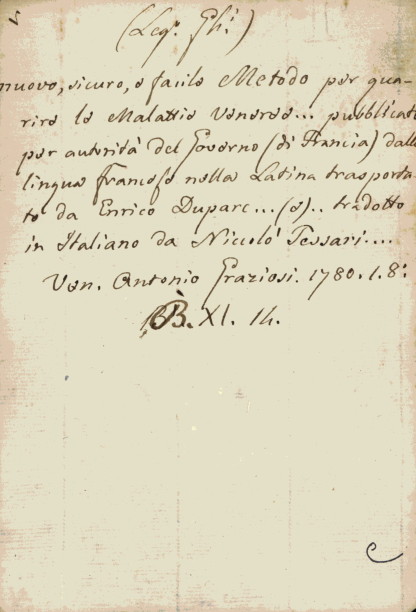 (Leg. Gli.)
nuovo, sicuro, e facile Metodo per gua-
rire le Malattie Veneree... pubblicato
per autorità del Governo (di Francia) dalla
lingua francese nella Latina trasporta-
to da Enrico Duparc... (e).. tradotto
in Italiano da Niccolò Tessari....
Ven. Antonio Graziosi. 1780. 1. 8:
B. XI. 14.